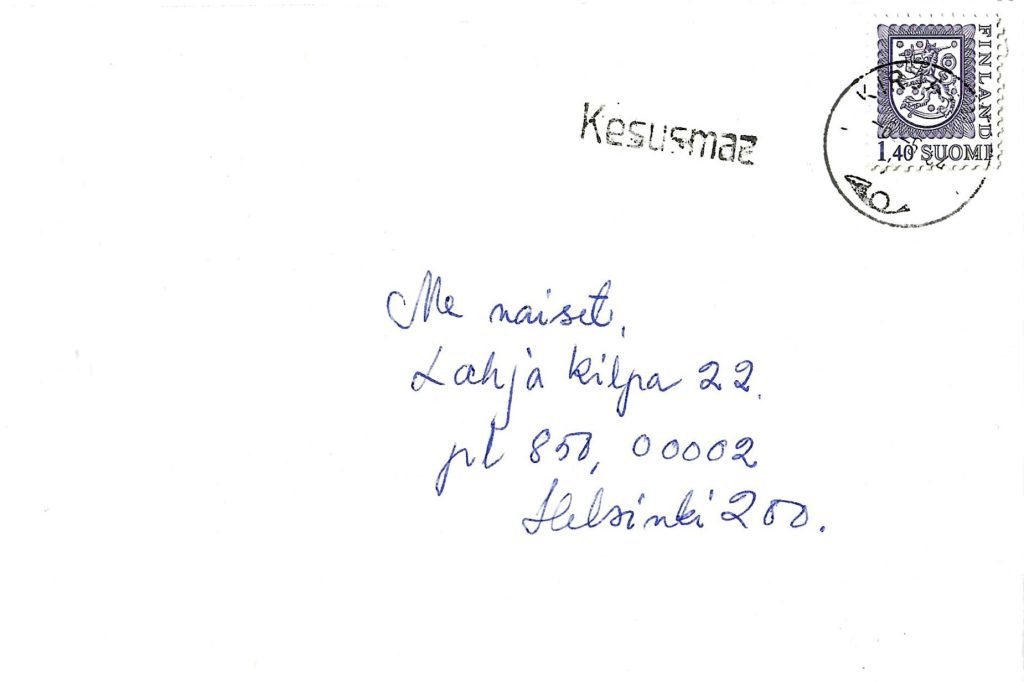 FINLAND
1,40 SUOMI
Kesusmaa
Me naiset,
Lahja kilpa 22.
pl 850, 00002
Helsinki 200.